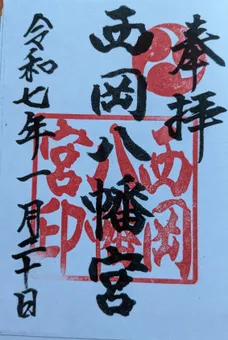 奉拝
西岡八幡宮
西岡八幡宮印
令和七年一月二十日